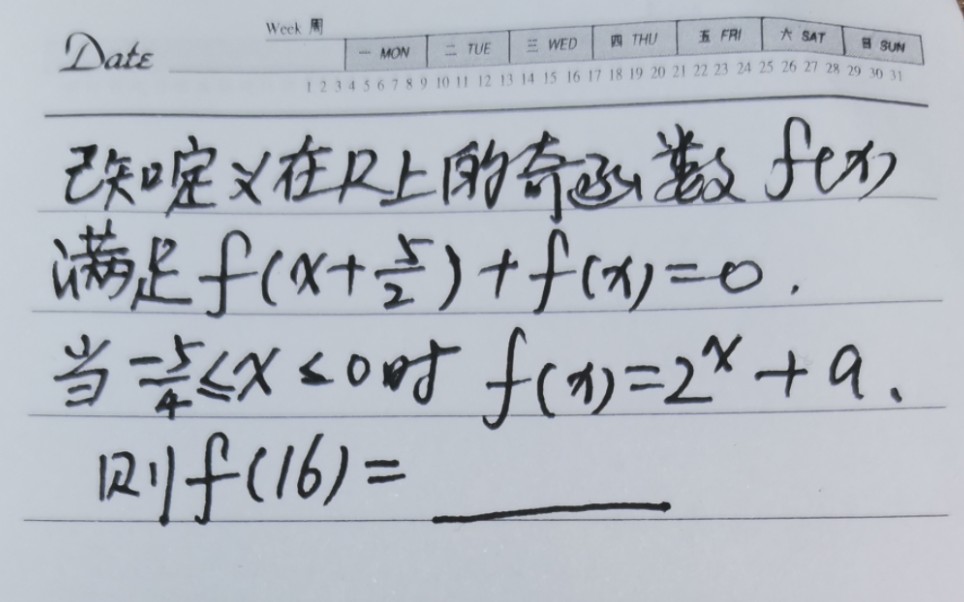 Week 周
Date
一 MON 二 TUE 三 WED 四 THU 五 FRI 六 SAT 日 SUN
1 2 3 4 5 6 7 8 9 10 11 12 13 14 15 16 17 18 19 20 21 22 23 24 25 26 27 28 29 30 31
已知定义在R上的奇函数 f(x)
满足 f(x+5/2)+f(x)=0.
当 -5/4≤x≤0时 f(x)=2^x+a.
则f(16)=